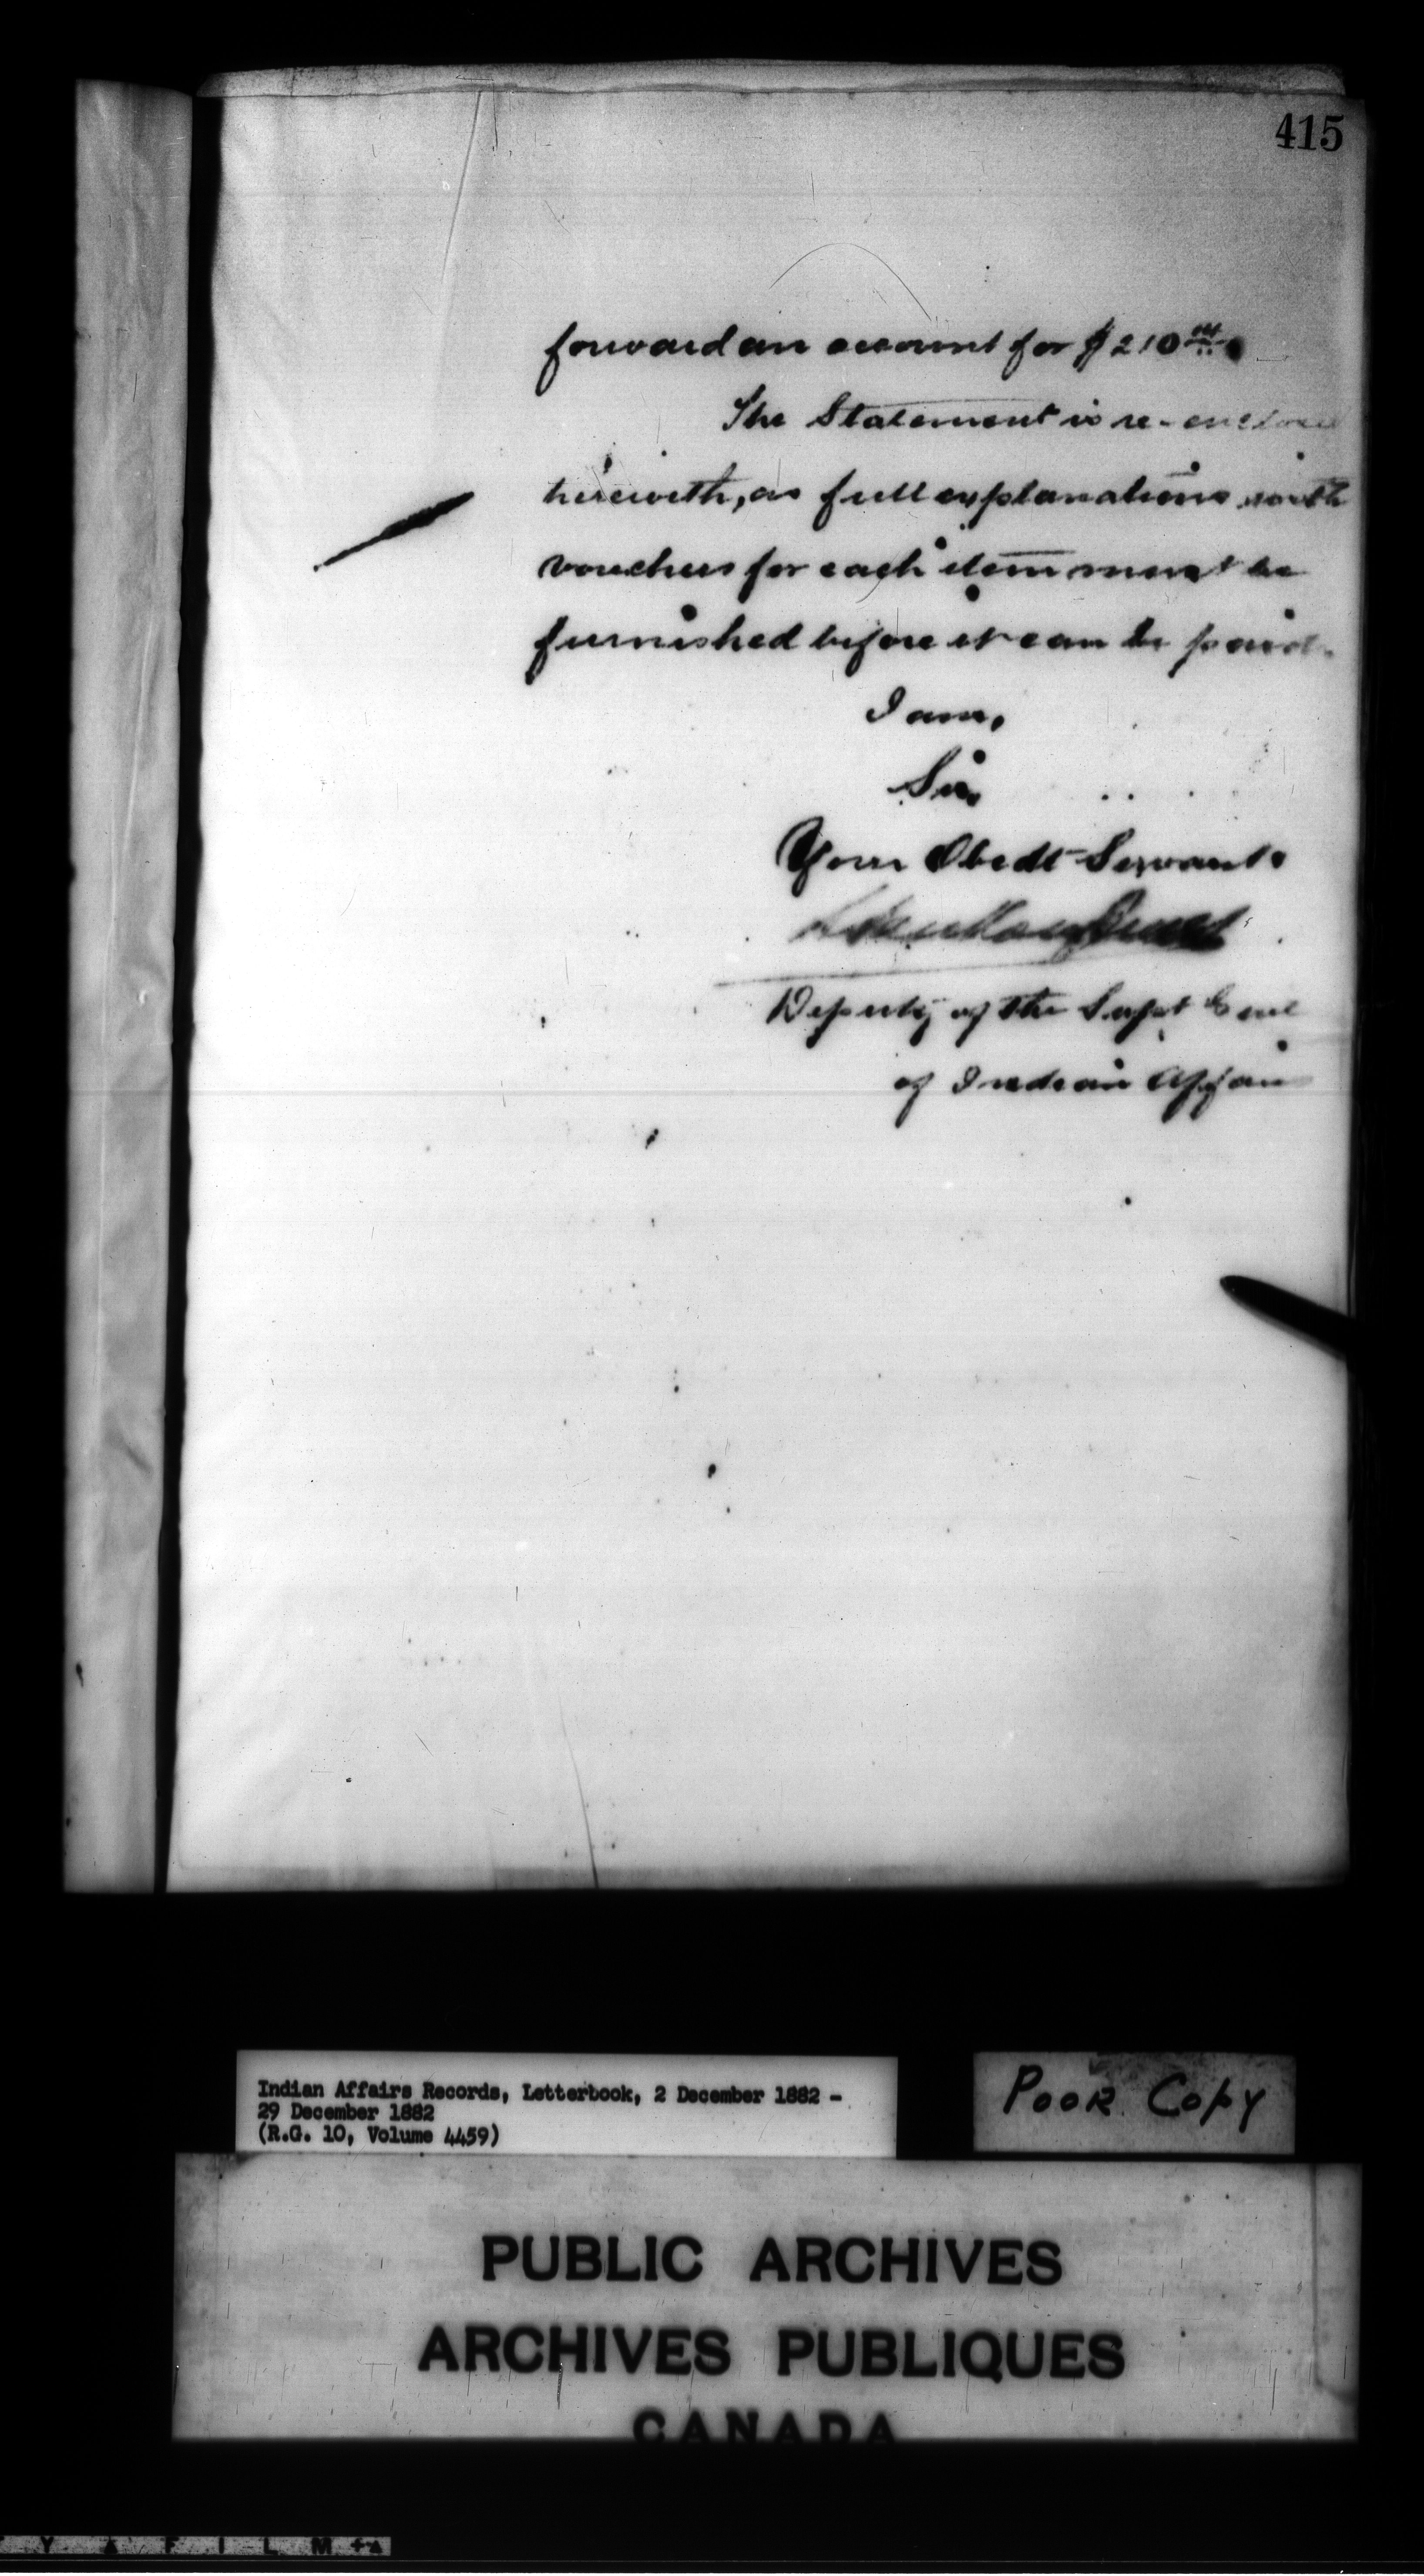 415
forward an account for $210
The Statement is re-enclosed
herewith, as full explanations with
vouchers for each item must be
furnished before it can be paid.
I am,
Sir,
Your Obedt Servant.
Deputy of the Supt Genl
of Indian Affairs
Indian Affairs Records, Letterbook, 2 December 1882 -
29 December 1882
(R.G. 10, Volume 4459)
Poor Copy
PUBLIC ARCHIVES
ARCHIVES PUBLIQUES
CANADA